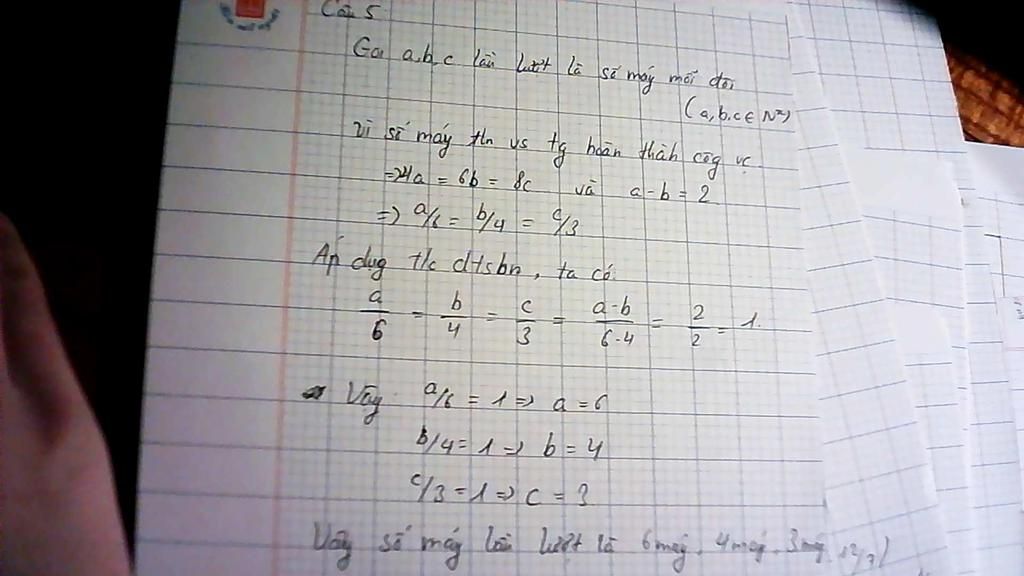 Câu 5
Gọi a,b,c lần lượt là số máy mỗi đội
(a,b,c ∈ N*)
Vì số máy tln vs tg hoàn thàh côg vc
=> 4a = 6b = 8c và a-b = 2
=> a/6 = b/4 = c/3
Áp dug t/c dtsbn, ta có:
a/6 = b/4 = c/3 = a-b/6-4 = 2/2 = 1.
Vậy: a/6 = 1 => a = 6
b/4 = 1 => b = 4
c/3 = 1 => c = 3
Vậy số máy lần lượt là 6 máy, 4 máy, 3 máy